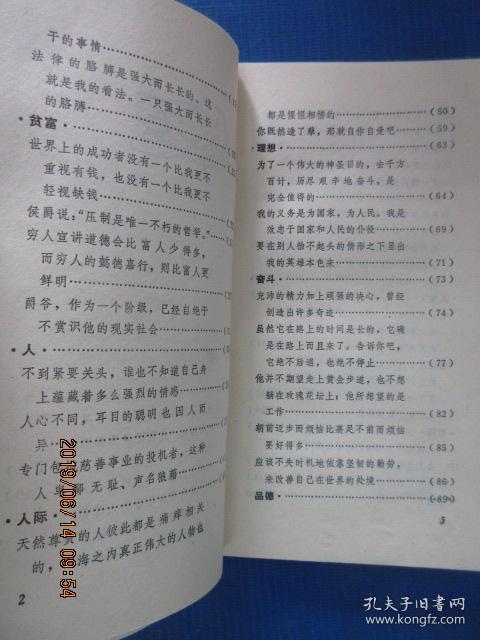 干的事情……………………(1
法律的胳膊是强大而长长的。这
就是我的看法。一只强大而长长
的胳膊……………………
·贫富·……………………
世界上的成功者没有一个比我更不
重视有钱，也没有一个比我更不
轻视缺钱……………………
侯爵说：“压制是唯一不朽的哲学。”
穷人宣讲道德会比富人少得多，
而穷人的懿德嘉行，则比富人更
鲜明……………………
爵爷，作为一个阶级，已经自绝于
不赏识他的现实社会……………………
·人·……………………
不到紧要关头，谁也不知道自己身
上蕴藏着多么强烈的情感……………………
人心不同，耳目的聪明也因人而
异……………………
专门包 慈善事业的投机者，这种
人卑鄙无耻、声名狼藉……………………
·人际·……………………
天然尊贵的人彼此都是痛痒相关
的， 海之内真正伟大的人物也
2
都是惺惺相惜的……………………(50)
你既然造了孽，那就自作自受吧……(59)
·理想·……………………(63)
为了一个伟大的神圣目的，去千方
百计，历尽艰辛地奋斗，是
完全值得的……………………(64)
我的义务是为国家，为人民。我是
效忠于国家和人民的仆役……………………(69)
要在别人抬不起头的情形之下显出
我的英雄本色来……………………(71)
·奋斗·……………………(73)
充沛的精力加上顽强的决心，曾经
创造出许多奇迹……………………(74)
虽然它在路上的时间是长的，它确
是在路上而且来了。告诉你吧，
它绝不后退，也绝不停止……………………(77)
他并不期望走上黄金步道，也不想
躺在玫瑰花坛上；他所想望的是
工作……………………(82)
朝前迈步而烦恼比裹足不前而烦恼
要好得多……………………(85)
应该不失时机地依靠坚韧的勤劳，
来改善自己在世界的处境……………………(86)
品德……………………(89)
3
2019/06/14 09:54
孔夫子旧书网
www.kongfz.com